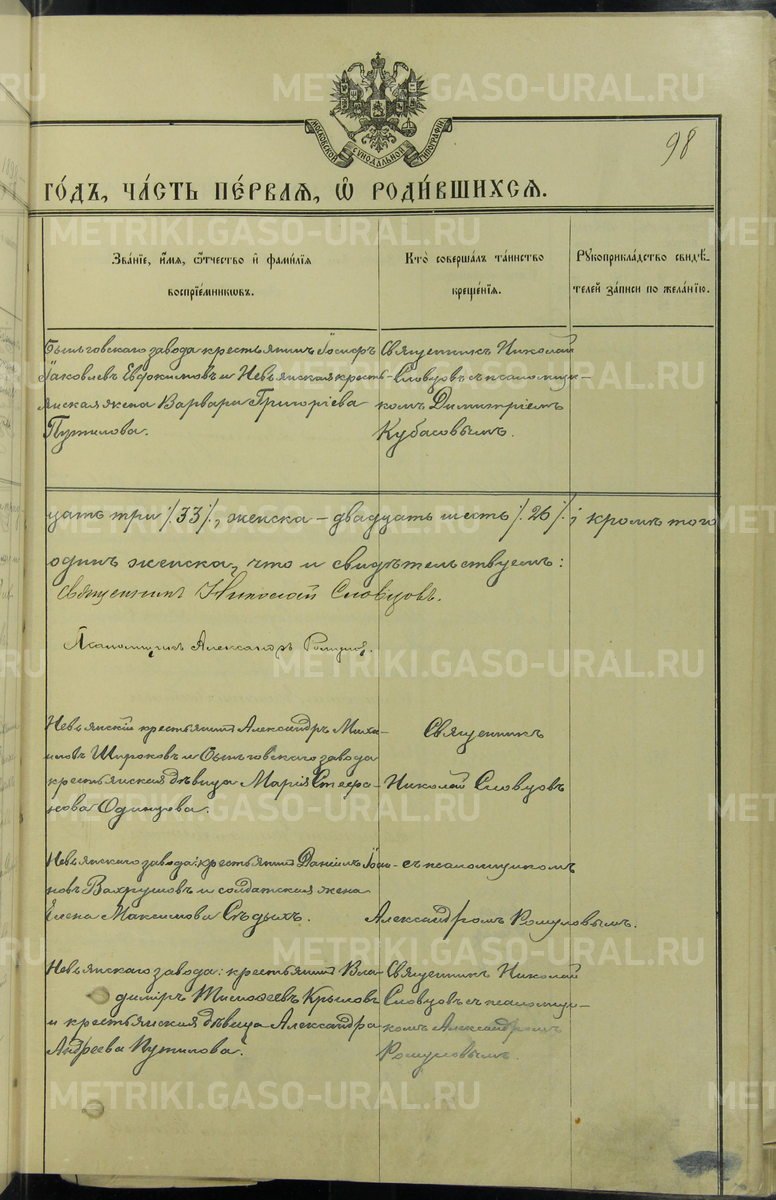 МОСКОВСКОЙ СѴНОДАЛЬНОЙ ТИПОГРАФІИ
98
ГО́ДЪ, ЧА́СТЬ ПЕ́РВАЯ, Ѡ҆ РОДИ́ВШИХСЯ.
Зва́нїе, и҆́мя, ѻ҆́тчество и҆ фами́лїя
воспрїе́мникѡвъ.
Кто̀ соверша́лъ та́инство
креще́нїя.
Рꙋкоприкла́дство свидѣ́-
телей за́писи по жела́нїю.
Быньговскаго завода крестьянинъ Іосифъ
Іаковлевъ Евдокимовъ и Невьянская кресть-
янская жена Варвара Григоріева
Путилова.
Священникъ Николай
Словцовъ съ псаломщи-
комъ Димитріемъ
Кубасовымъ.
цать три /33/, женска – двадцать шесть /26/; кромѣ того
одинъ женска, что и свидѣтельствуемъ:
Священникъ Николай Словцовъ.
Псаломщикъ Александръ
Невьянскій крестьянинъ Александръ Миха-
иловъ Широковъ и Быньговскаго завода
крестьянская дѣвица Марія Стефа-
нова Одинцева.
Священникъ
Николай Словцовъ
Невьянскаго завода: крестьянинъ Даніилъ
новъ Вахрушовъ и солдатская жена
Елена Максимова Сѣдыхъ.
съ псаломщикомъ
Александромъ Ромуловымъ.
Невьянскаго завода: крестьянинъ Вла-
димиръ Тимоѳеевъ Крыловъ
и крестьянская дѣвица Александра
Андреева Путилова.
Священникъ Николай
Словцовъ съ псаломщи-
комъ Александромъ
Ромуловымъ.
METRIKI.GASO-URAL.RU